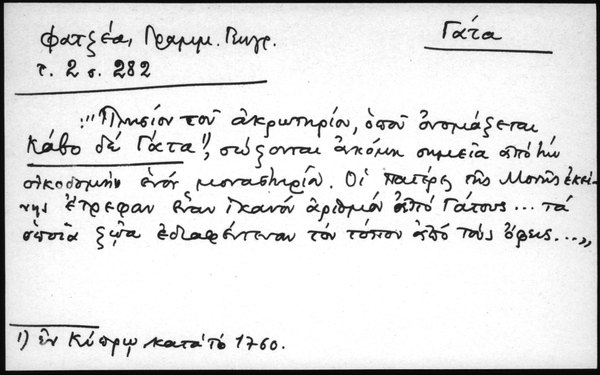 Φατζέα, Γραμμ. Γεωγρ.
Γάτα
τ. 2 σ. 282
:"Πλησίον τοῦ ἀκρωτηρίου, ὁποῦ ὀνομάζεται
Κάβο δέ Γάτα¹⁾, σώζονται ἀκόμη σημεῖα ἀπό τήν
οἰκοδομήν ἑνός μοναστηρίου. Οἱ πατέρες τῆς Μονῆς ἐκεί-
νης ἔτρεφαν ἕναν ἱκανόν ἀριθμόν ἀπό Γάτους... τά
ὁποῖα ζῷα ἐδιαφέντευαν τόν τόπον ἀπό τούς ὄφεις...."
1) ἐν Κύπρῳ κατά τό 1760.